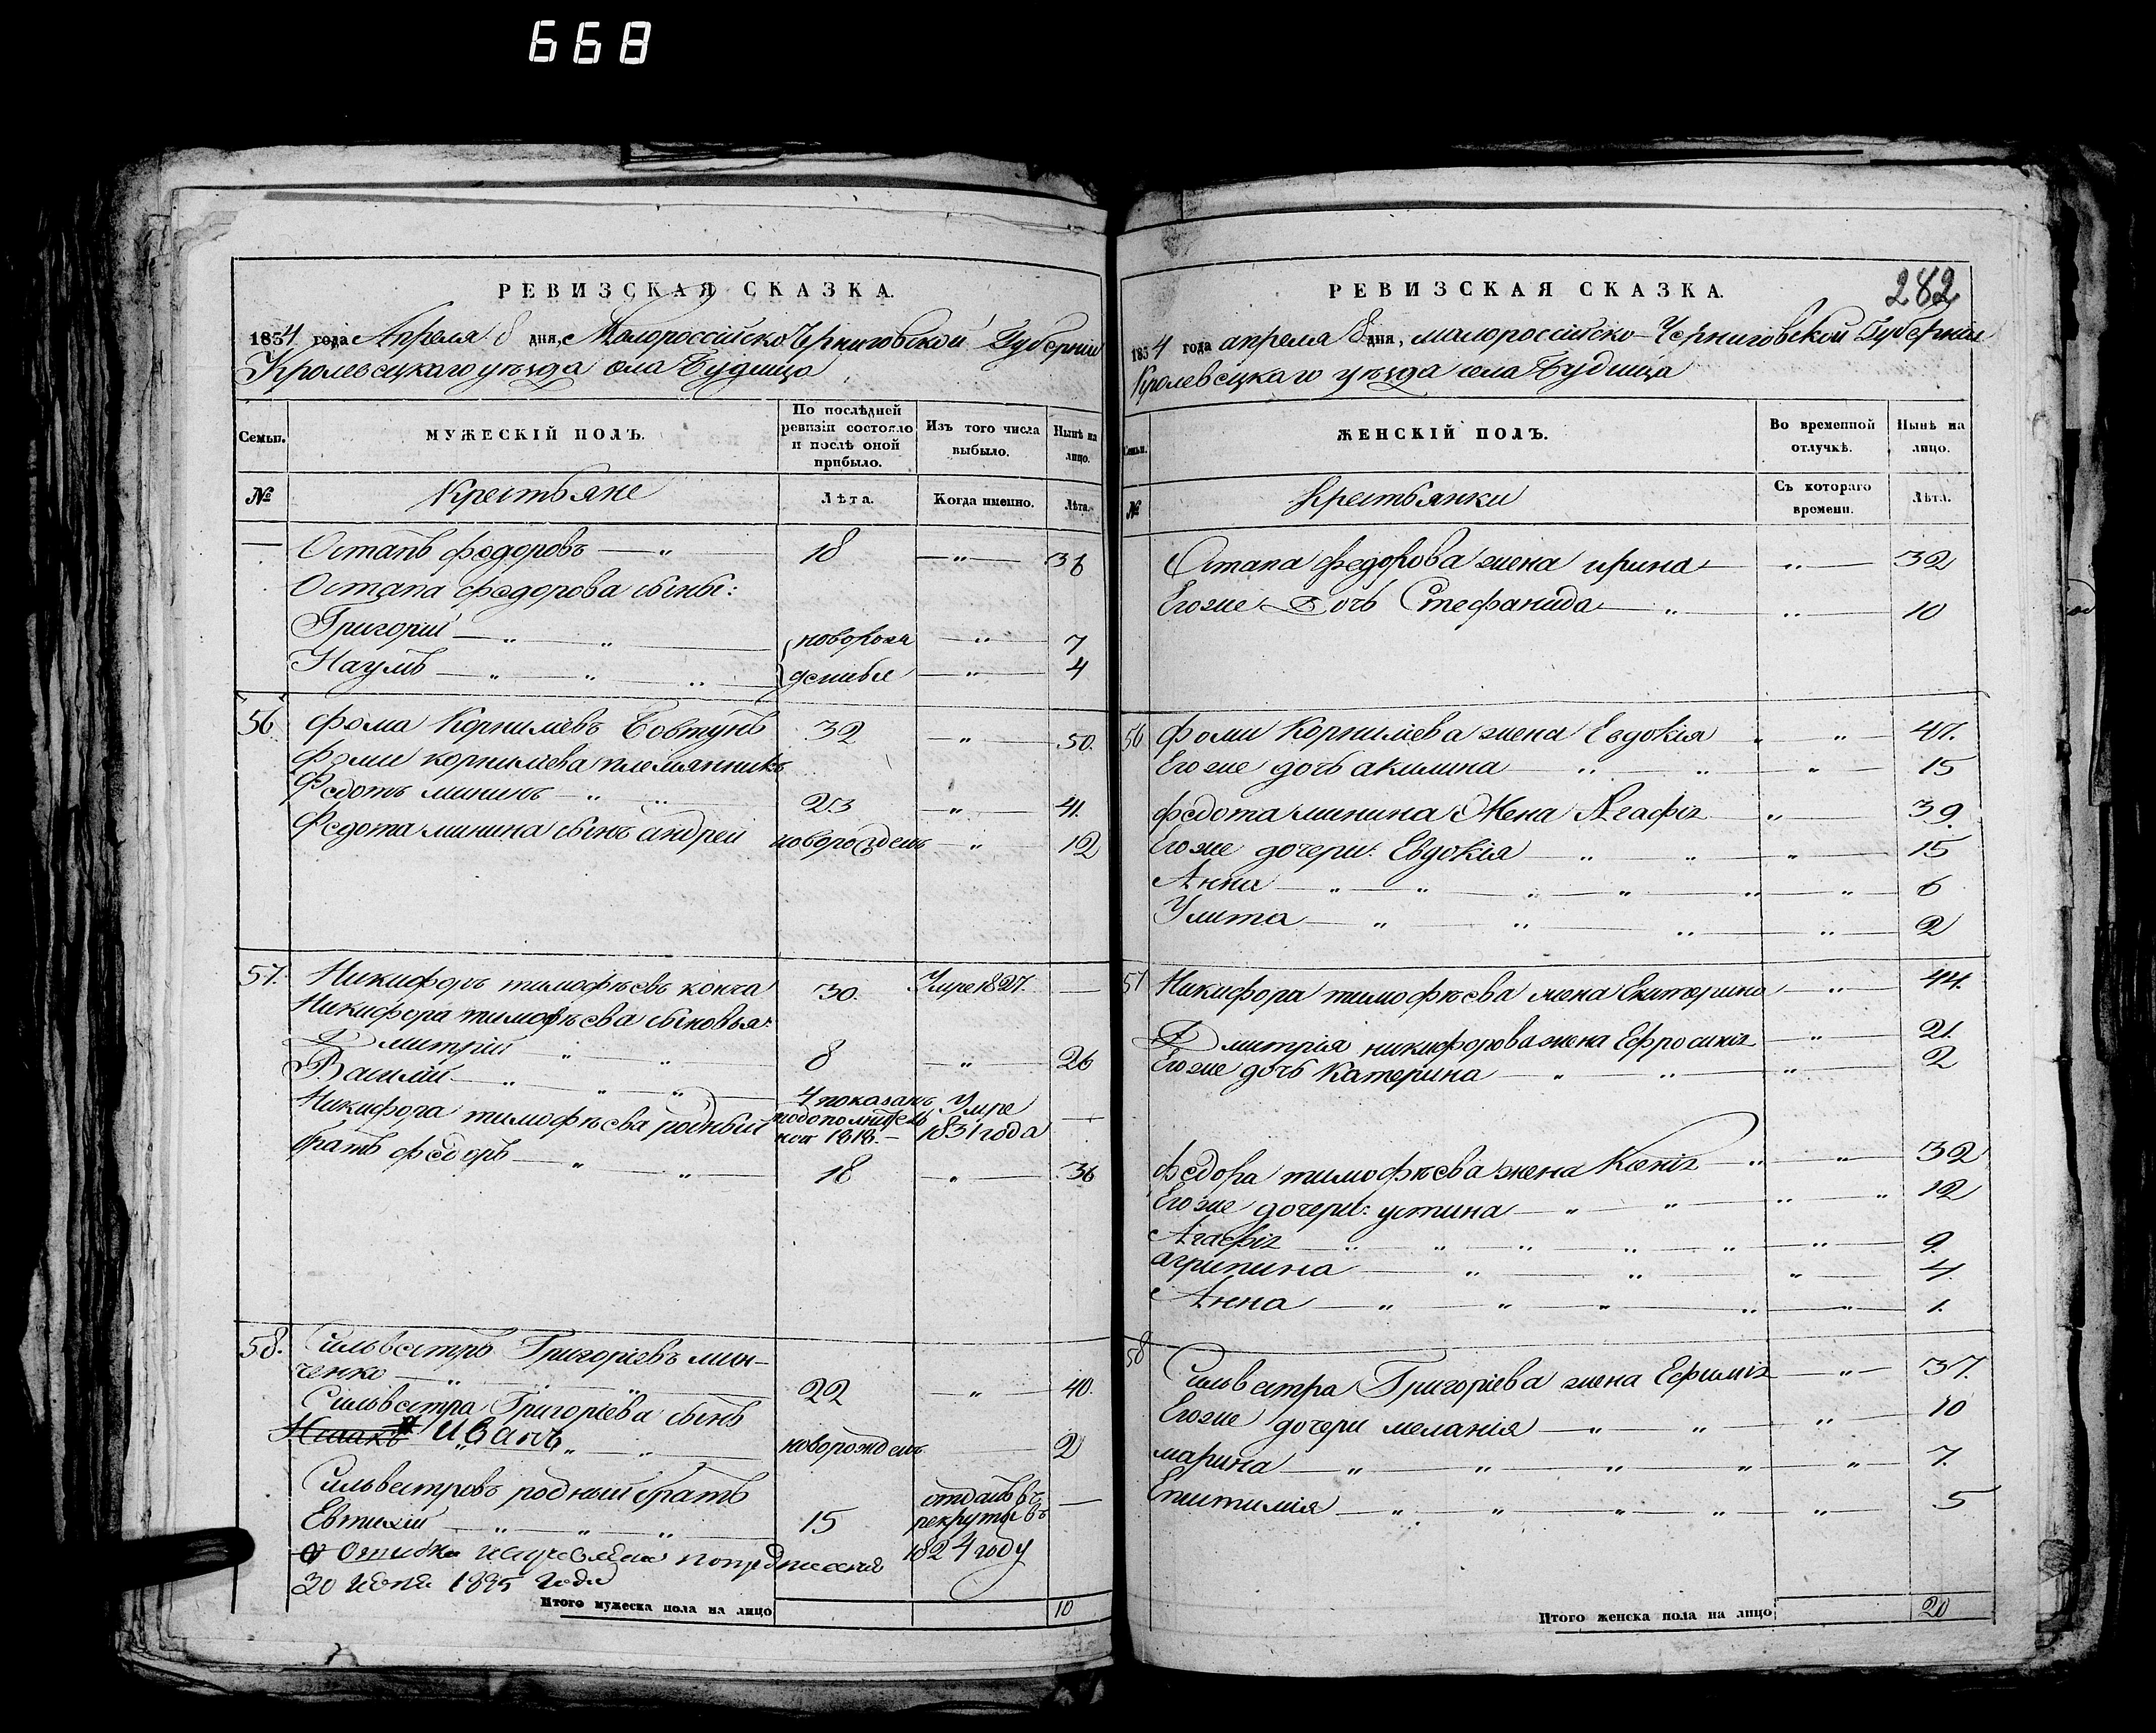 668
РЕВИЗСКАЯ СКАЗКА.
1834 года Апреля 8 дня, Малороссійско Черниговской Губерніи
Кролевецкаго уѣзда села Будища
Семьи.
МУЖЕСКІЙ ПОЛЪ.
По послѣдней ревизіи состояло и послѣ оной прибыло.
Изъ того числа выбыло.
Нынѣ на лицо.
№
Крестьяне
Лѣта.
Когда именно.
Лѣта.
Остапъ федоровъ — 18 — 36
Остапа федорова сыны:
Григорій — новорож — 7
Наумъ — денные — 4
56 фома Корниліевъ Човтунъ 32 — 50.
Фомы корниліева племянникъ
Федотъ мининъ — 23 — 41.
Федота минина сынъ андрей новорожденъ — 12
57. Никифоръ тимофѣевъ конча 30. Умре 1827. —
Никифора тимофѣева сыновья:
Дмитрій — 8 — 26
Василій — 4 показанъ Умре
Никифора тимофѣева родный подополнитель 1831 года —
ной 1818. —
братъ федоръ — 18 — 36
58. Сильвестръ Григоріевъ мин-
ченко — 22 — 40.
Сильвестра Григоріева сынъ
Исаакъ Иванъ — новорожденъ — 2
Сильвестровъ родный братъ отданъ въ —
Евтихій — 15 рекруты въ
1824 году
Ошибка
30 Июня 1835 Года
Итого мужеска пола на лицо 10
282
РЕВИЗСКАЯ СКАЗКА.
1834 года апреля 8 дня, малороссійско-Черниговской Губерніи
Кролевецкаго уѣзда села Будища
Семьи.
ЖЕНСКІЙ ПОЛЪ.
Во временной отлучкѣ.
Нынѣ на лицо.
№
Крестьянки
Съ котораго времени.
Лѣта.
Остапа федорова жена ирина — 32
Егоже Дочь Стефанида — 10
56 фомы Корниліева жена Евдокія — 47.
Егоже дочь акилина — 15
федота минина Жена Агафія — 39.
Егоже дочери: Евдокія — 15
Анна — 6
Улита — 2
57 Никифора тимофѣева жена Екатерина — 44.
Дмитрія никифорова жена Ефросинія — 21.
Егоже дочь Катерина — 2
федора тимофѣева жена Ксенія — 32
Егоже дочери: устина — 12
Агафія — 9.
агрипина — 4.
Анна — 1.
58 Сильвестра Григоріева жена Ефимія — 37.
Егоже дочери меланія — 10
марина — 7.
Епитимія — 5
Итого женска пола на лицо 20